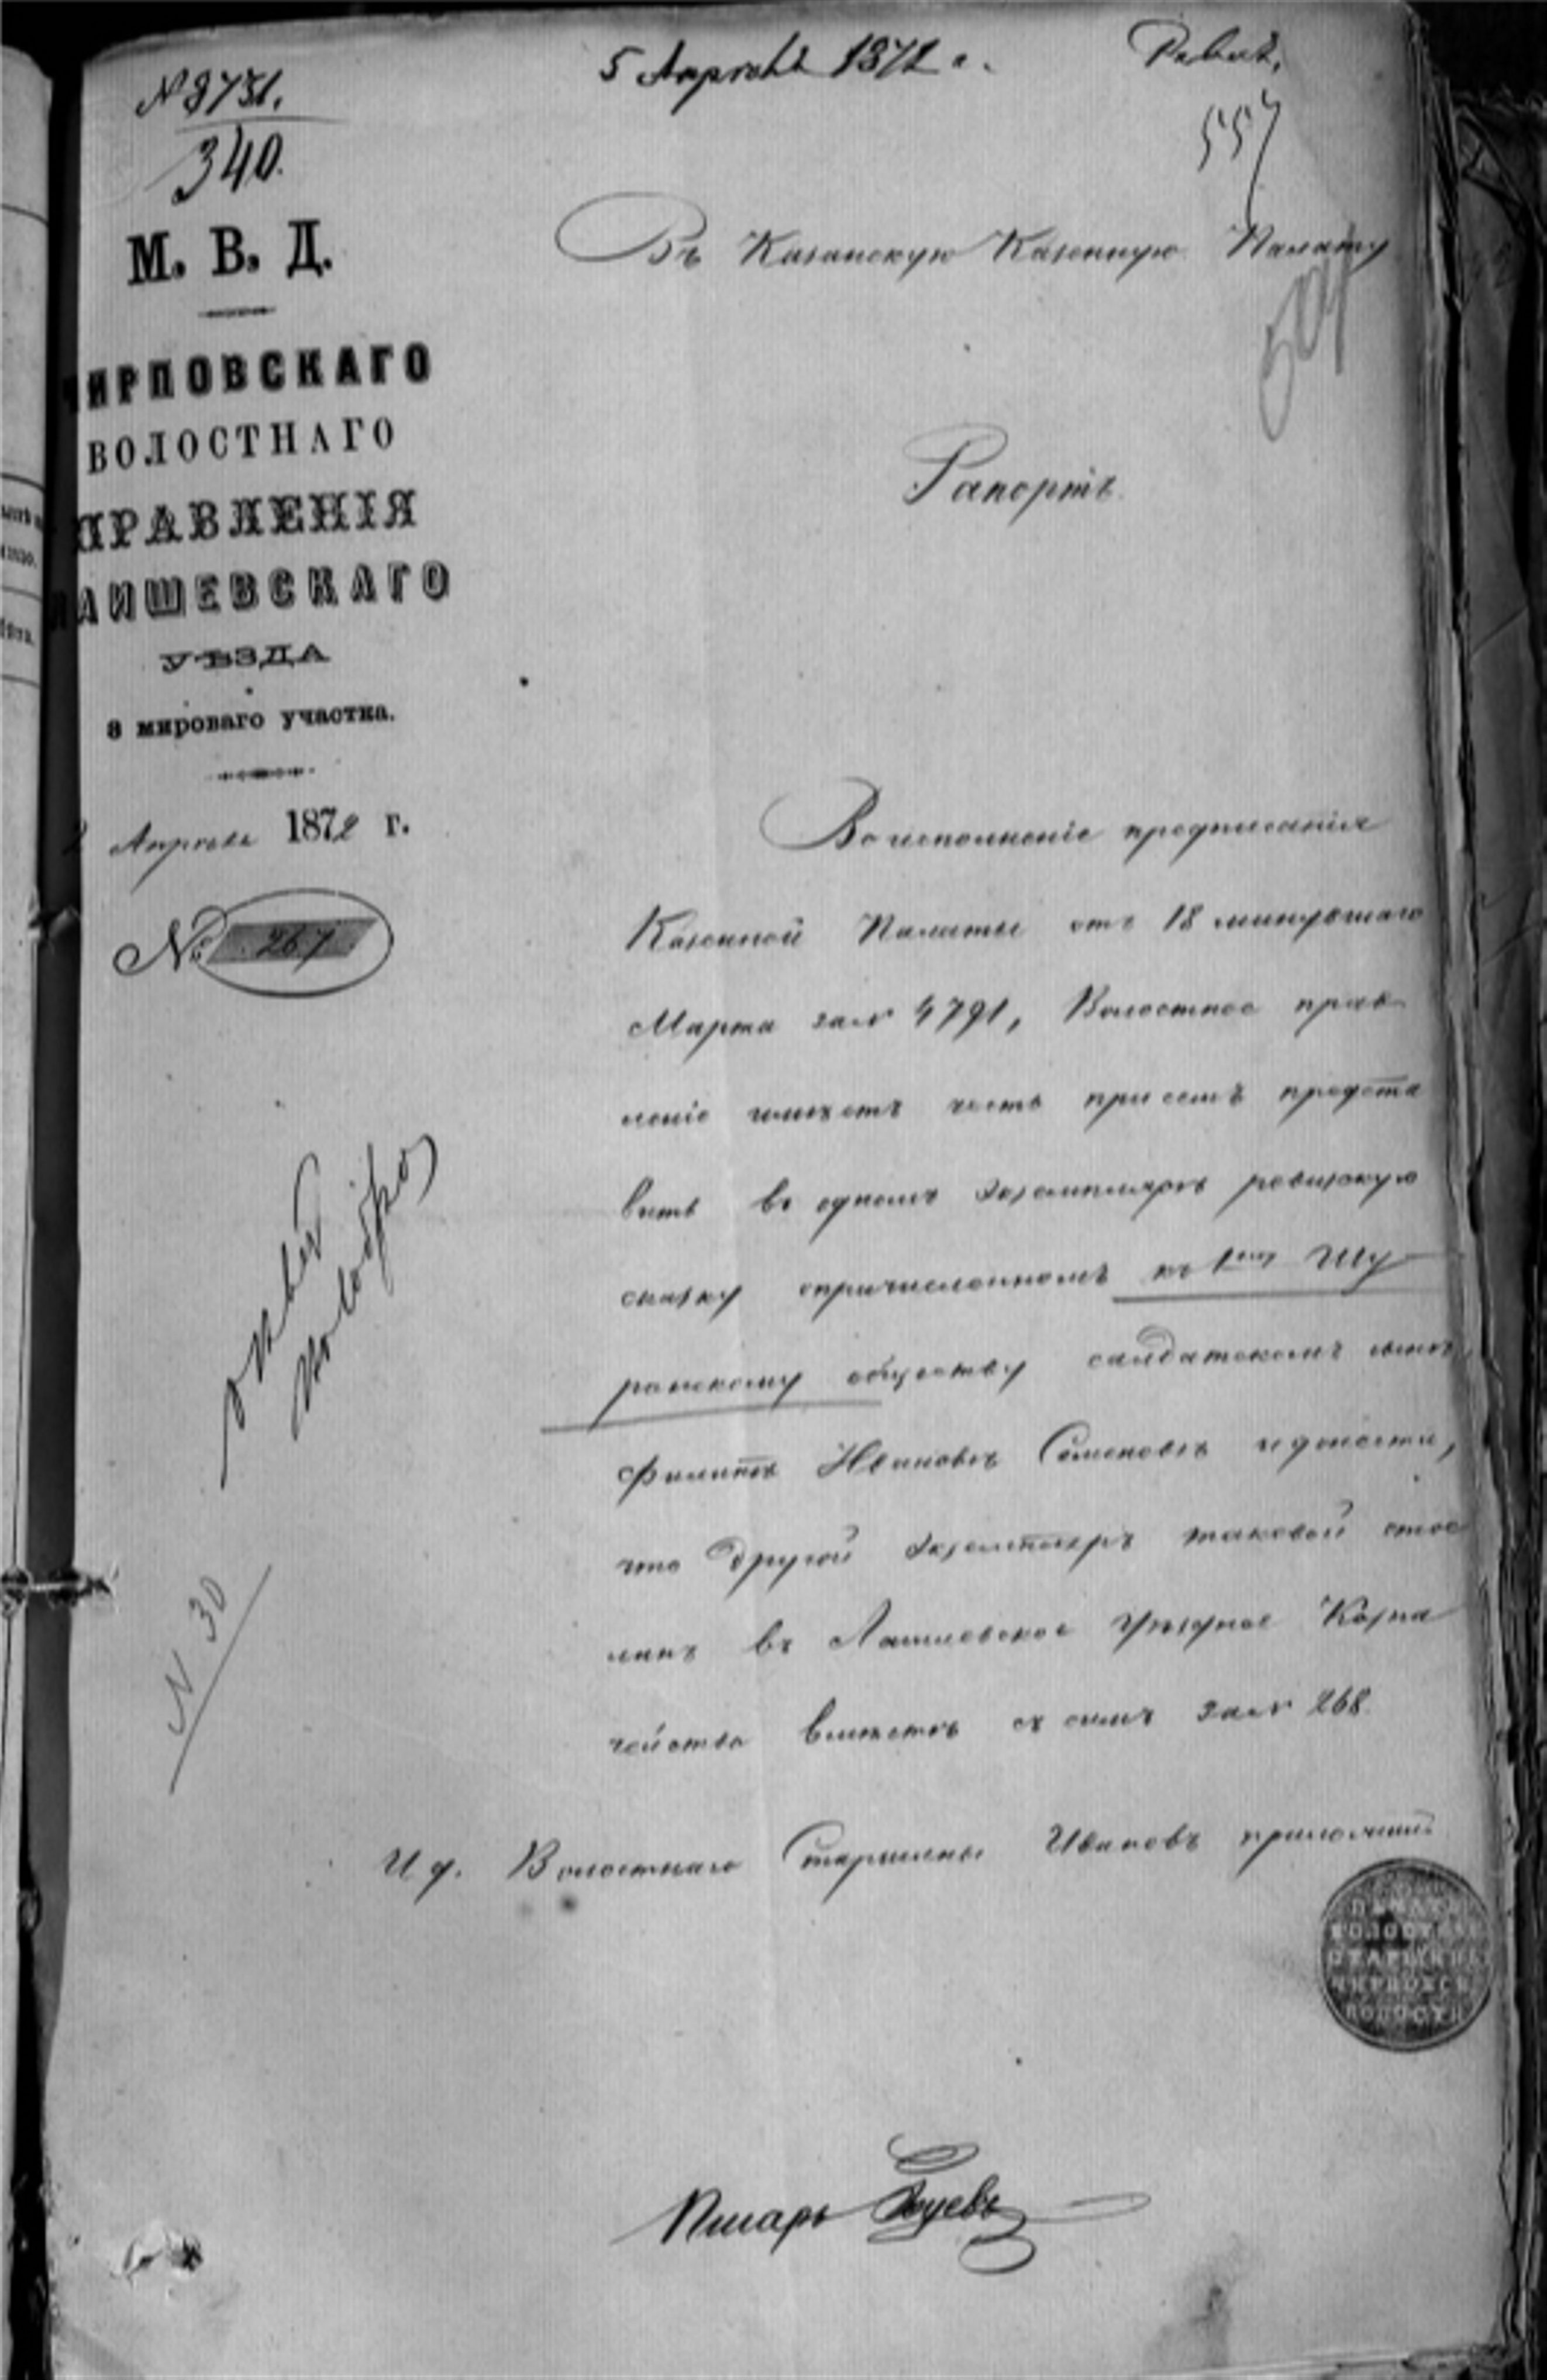 № 8731.
340.
5 Апрѣля 1872 г.
Ревиз.
557
М. В. Д.
ЧИРПОВСКАГО
ВОЛОСТНАГО
ПРАВЛЕНІЯ
ЛАИШЕВСКАГО
УѢЗДА
3 мироваго участка.
Апрѣля 1872 г.
№ 267
Въ Казанскую Казенную Палату
Рапортъ.
Во исполненіе предписанія
Казенной Палаты отъ 18 минувшаго
Марта за № 4791, Волостное прав
леніе имѣетъ честь при семъ предста
вить въ одномъ экземплярѣ ревизскую
сказку опричисленномъ къ 1му Шу
ранскому обществу салдатскомъ сынѣ
Филиппѣ Ивановѣ Семеновѣ идонести,
что другой экземпляръ таковой отос
ланъ въ Лаишевское Уѣздное Казна
чейство вмѣстѣ съ симъ за № 268.
И д. Волостнаго Старшины Ивановъ приложилъ
ПЕЧАТЬ
ВОЛОСТНАГО
СТАРШИНЫ
ЧИРПОВСК
ВОЛОСТИ
№ 30
Писарь